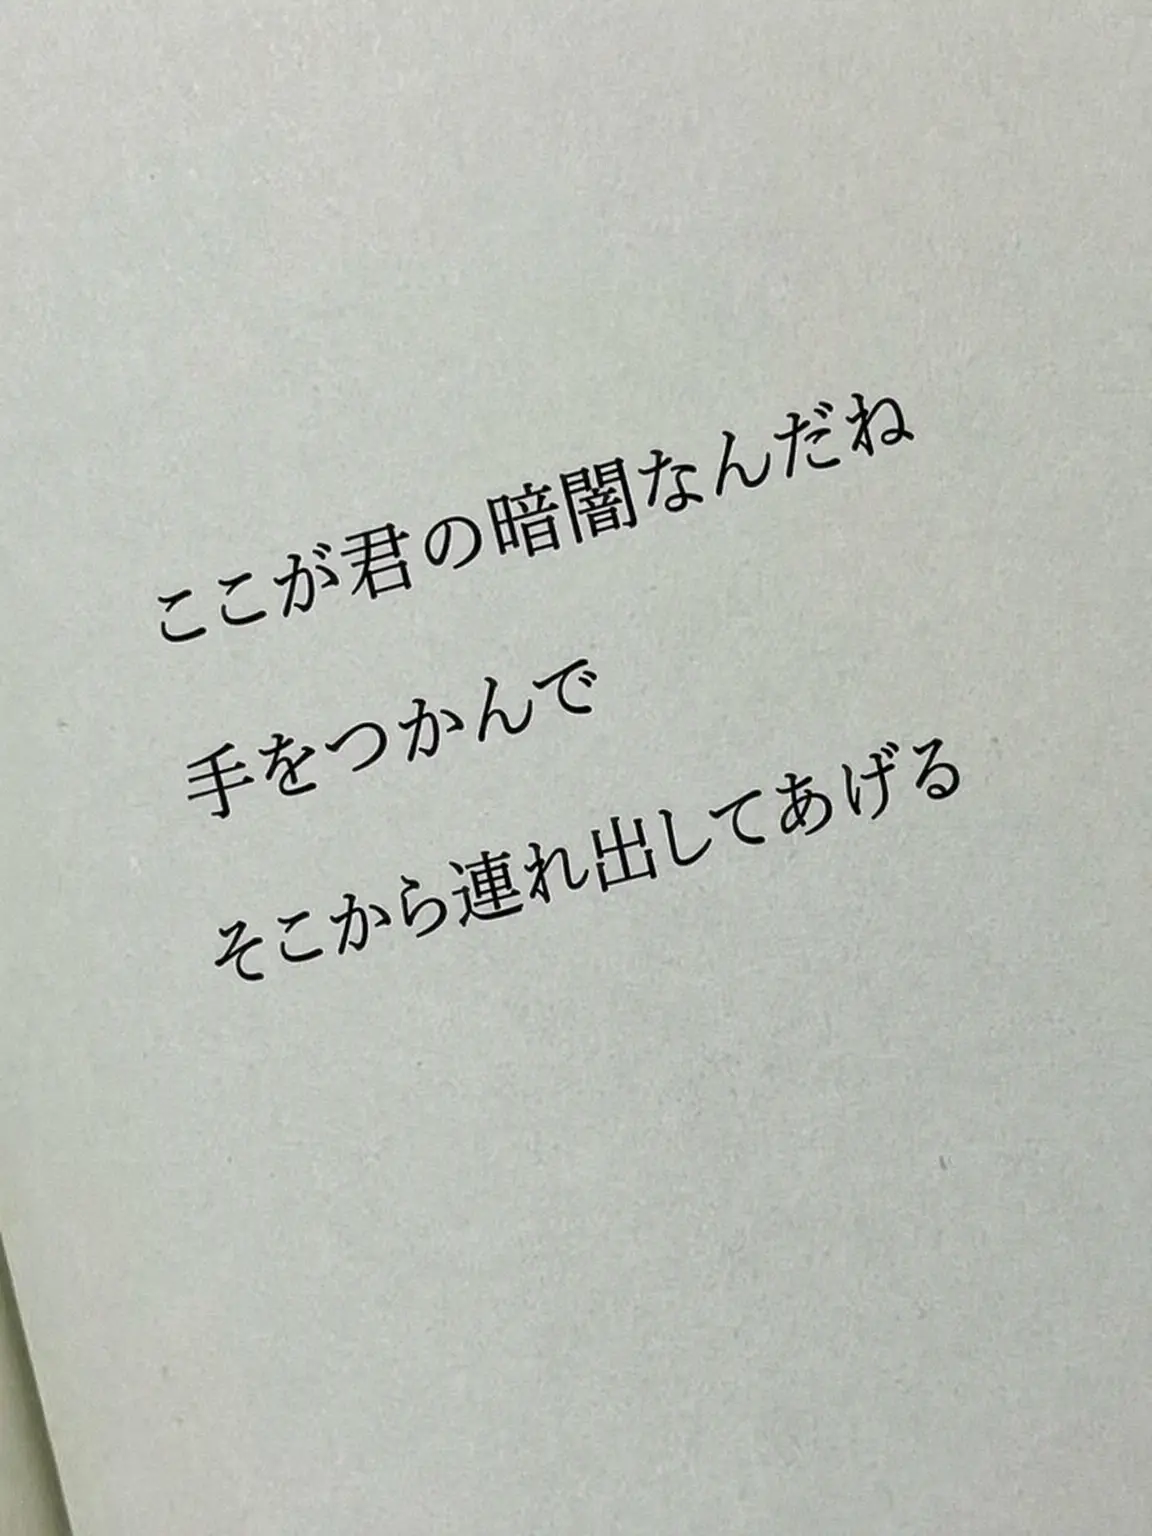 ここが君の暗闇なんだね
手をつかんで
そこから連れ出してあげる